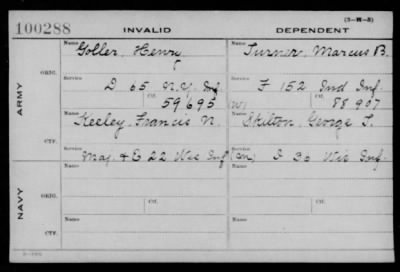 (3-H-3)
100288 INVALID DEPENDENT
Name Goller, Henry Name Turner, Marcus B.
ARMY
ORIG.
Service D 65 N.Y. Inf Service F 152 Ind Inf.
Ctf. 59695 (W) Ctf. 88907
Name Keeley, Francis N. Name Skilton, George T.
CTF.
Service Maj. & E 22 Wis Inf Service (M) I 36 Wis Inf.
NAVY
Name Name
ORIG.
Service Ctf. Service Ctf.
Name Name
CTF.
Service Service